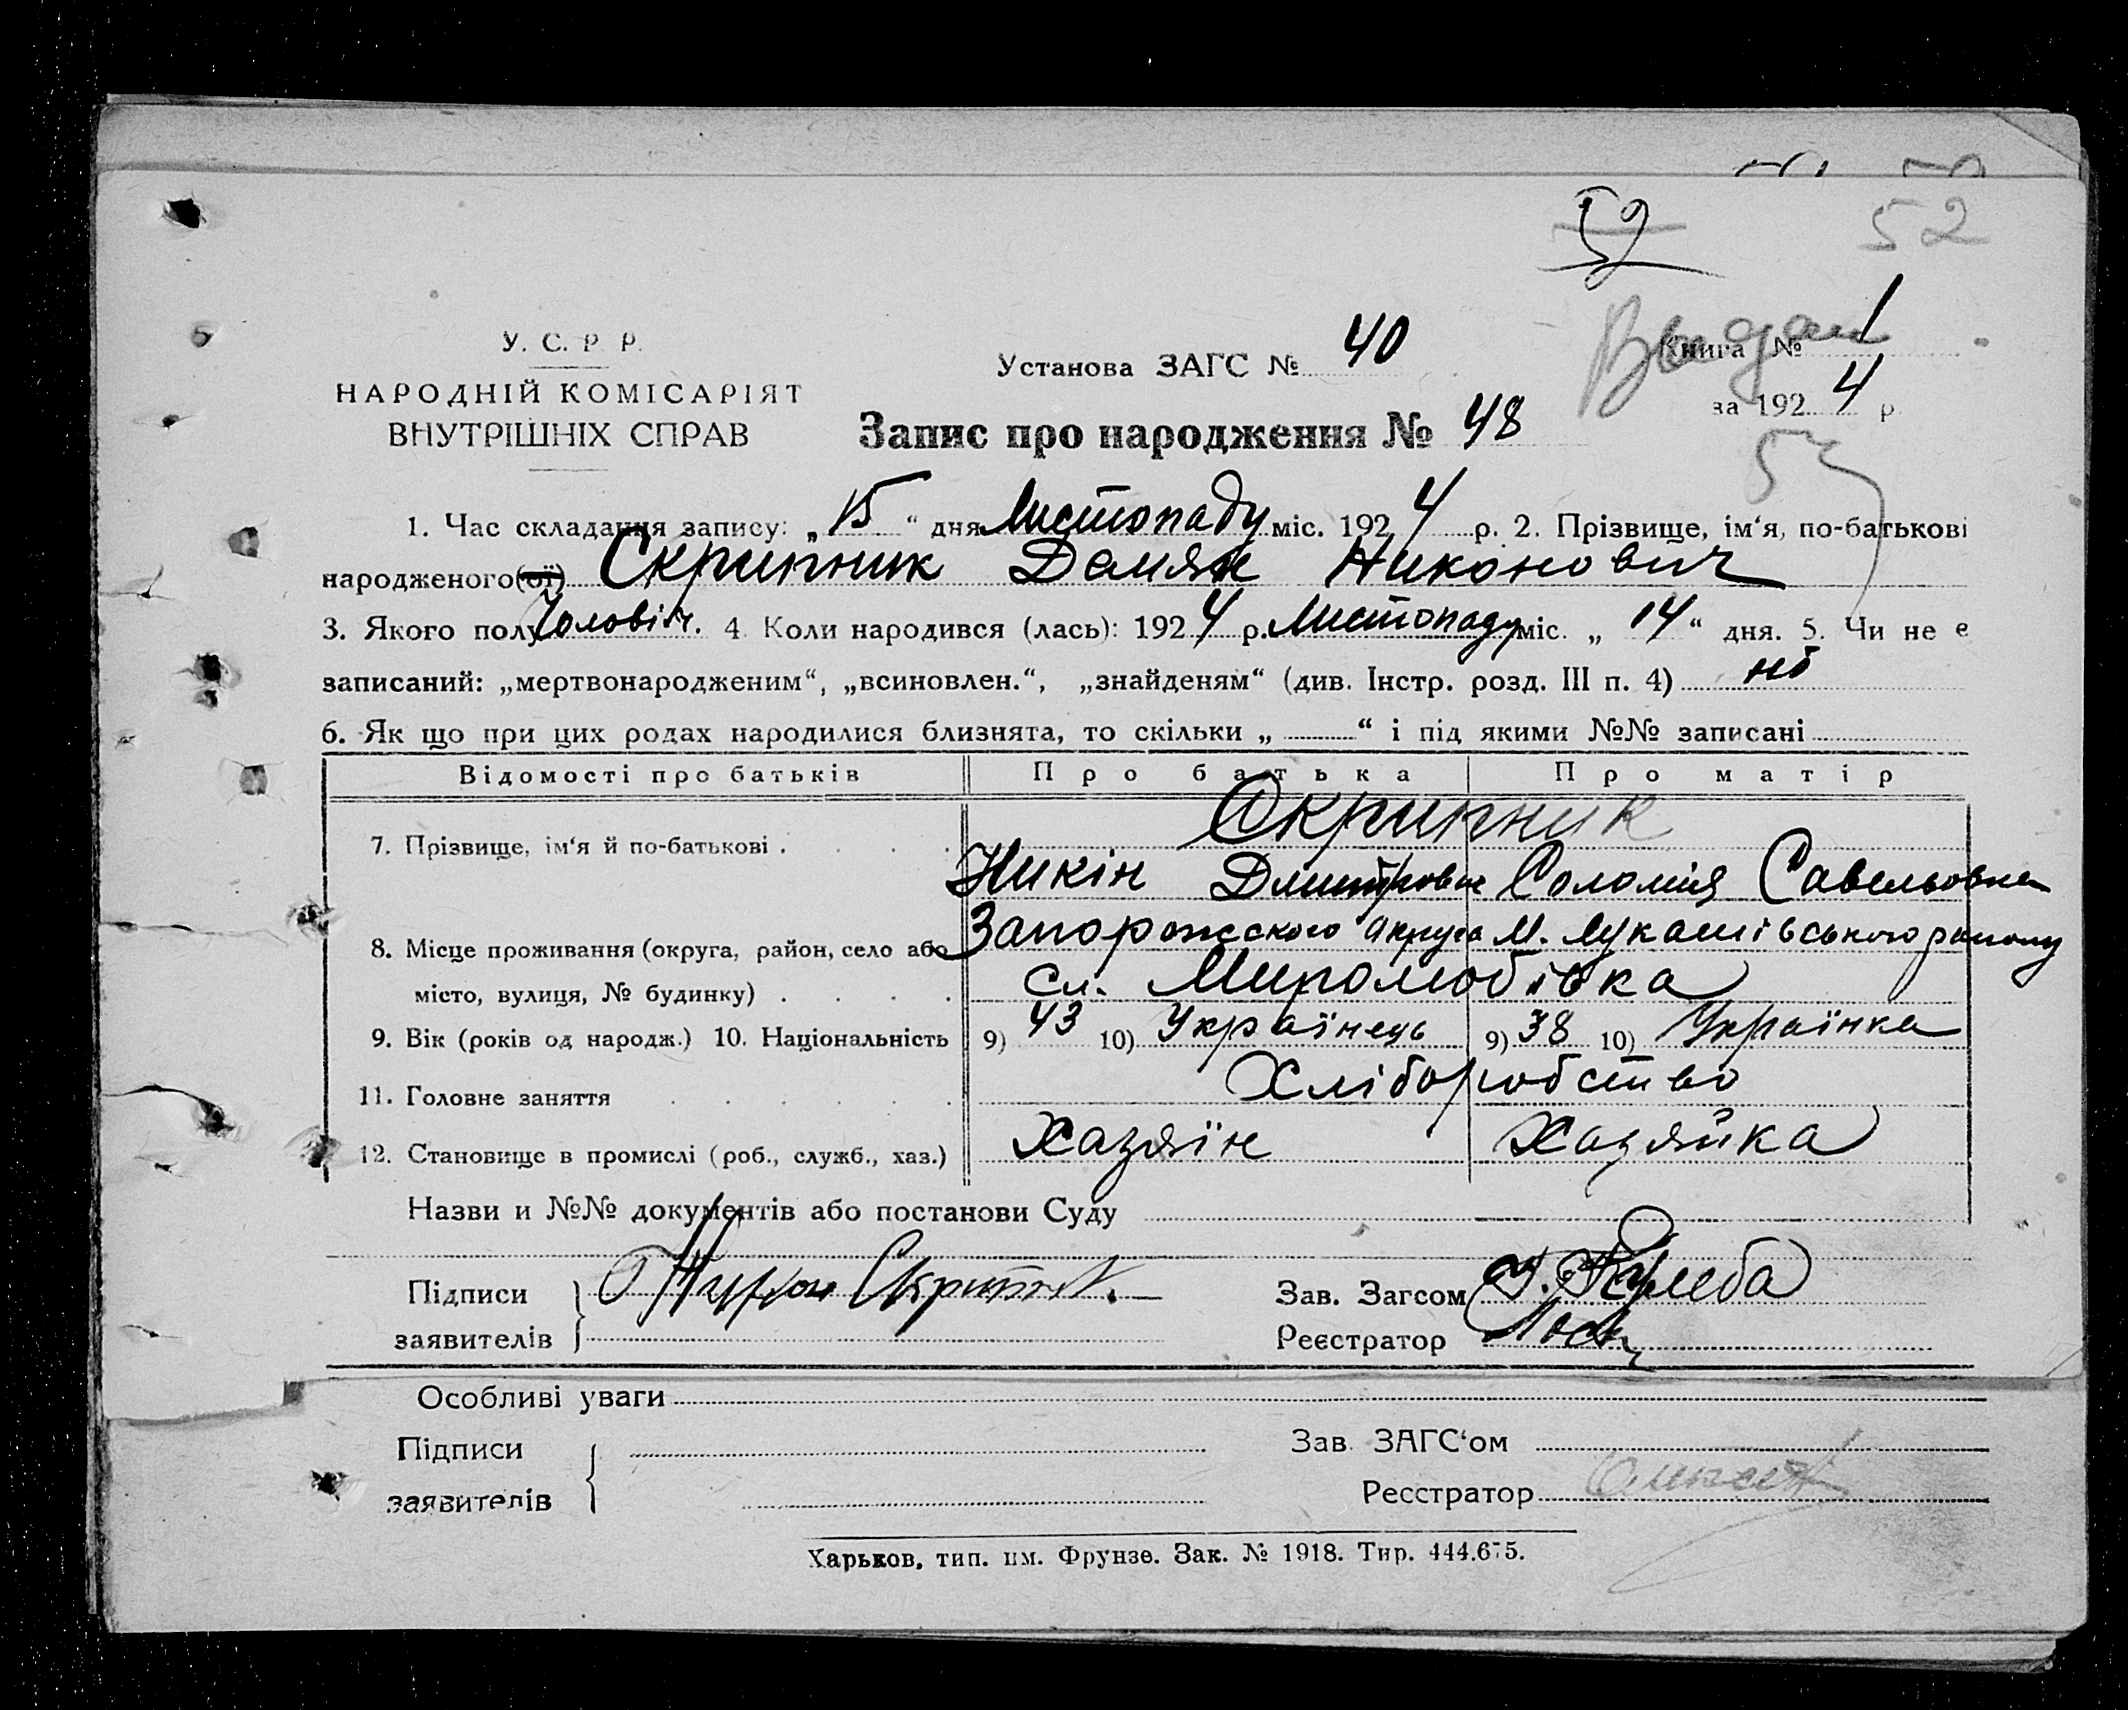 59
52
У. С. Р. Р.
НАРОДНІЙ КОМІСАРІЯТ
ВНУТРІШНІХ СПРАВ
Установа ЗАГС № 40
Книга № 1
за 1924 р.
Запис про народження № 48
1. Час складання запису: „15“ дня Листопаду міс. 1924 р. 2. Прізвище, ім‘я, по-батькові
народженого(ої) Скрипник Демян Никонович
3. Якого полу Чоловіч. 4. Коли народився (лась): 1924 р. Листопаду міс. „14“ дня. 5. Чи не є
записаний: „мертвонародженим“, „всиновлен.“, „знайденям“ (див. Інстр. розд. III п. 4) ні
6. Як що при цих родах народилися близнята, то скільки „ “ і під якими №№ записані
Відомості про батьків Про батька Про матір
Скрипник
7. Прізвище, ім‘я й по-батькові
Никін Дмитрович Соломія Савельовна
Запорожського округа М. Лукашівського району
8. Місце проживання (округа, район, село або
місто, вулиця, № будинку) сл. Миролюбівка
9. Вік (років од народж.) 10. Національність 9) 43 10) Українець 9) 38 10) Українка
11. Головне заняття Хліборобство
12. Становище в промислі (роб., служб., хаз.) Хазяїн Хазяйка
Назви и №№ документів або постанови Суду
Підписи Никон Зав. Загсом Кулеба
заявителів Реєстратор
Особливі уваги
Підписи Зав. ЗАГС‘ом
заявителів Реєстратор
Харьков, тип. им. Фрунзе. Зак. № 1918. Тир. 444.675.